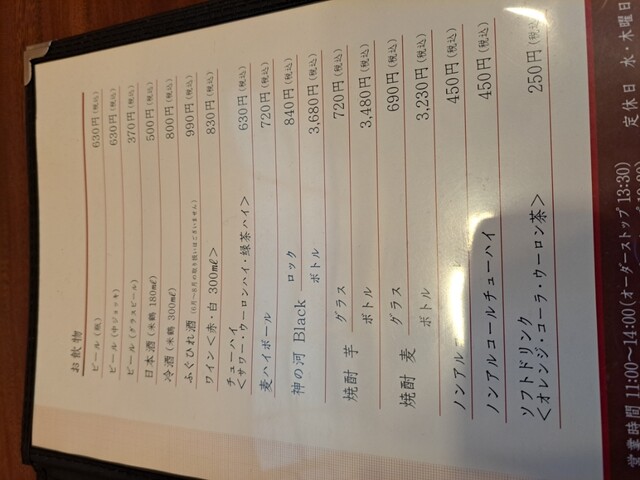 お飲物
ビール (瓶) 630円 (税込)
ビール (中ジョッキ) 630円 (税込)
ビール (グラスビール) 370円 (税込)
日本酒 (米鶴 180㎖) 500円 (税込)
冷酒 (米鶴 300㎖) 800円 (税込)
ふぐひれ酒 (6月〜8月の取り扱いはございません) 990円 (税込)
ワイン <赤・白 300㎖> 830円 (税込)
チューハイ
<サワー・ウーロンハイ・緑茶ハイ> 630円 (税込)
麦ハイボール 720円 (税込)
神の河 Black ロック 840円 (税込)
ボトル 3,680円 (税込)
焼酎 芋 グラス 720円 (税込)
ボトル 3,480円 (税込)
焼酎 麦 グラス 690円 (税込)
ボトル 3,230円 (税込)
ノンアル 450円 (税込)
ノンアルコールチューハイ 450円 (税込)
ソフトドリンク
<オレンジ・コーラ・ウーロン茶> 250円 (税込)
営業時間 11:00〜14:00 (オーダーストップ 13:30) 定休日 水・木曜日